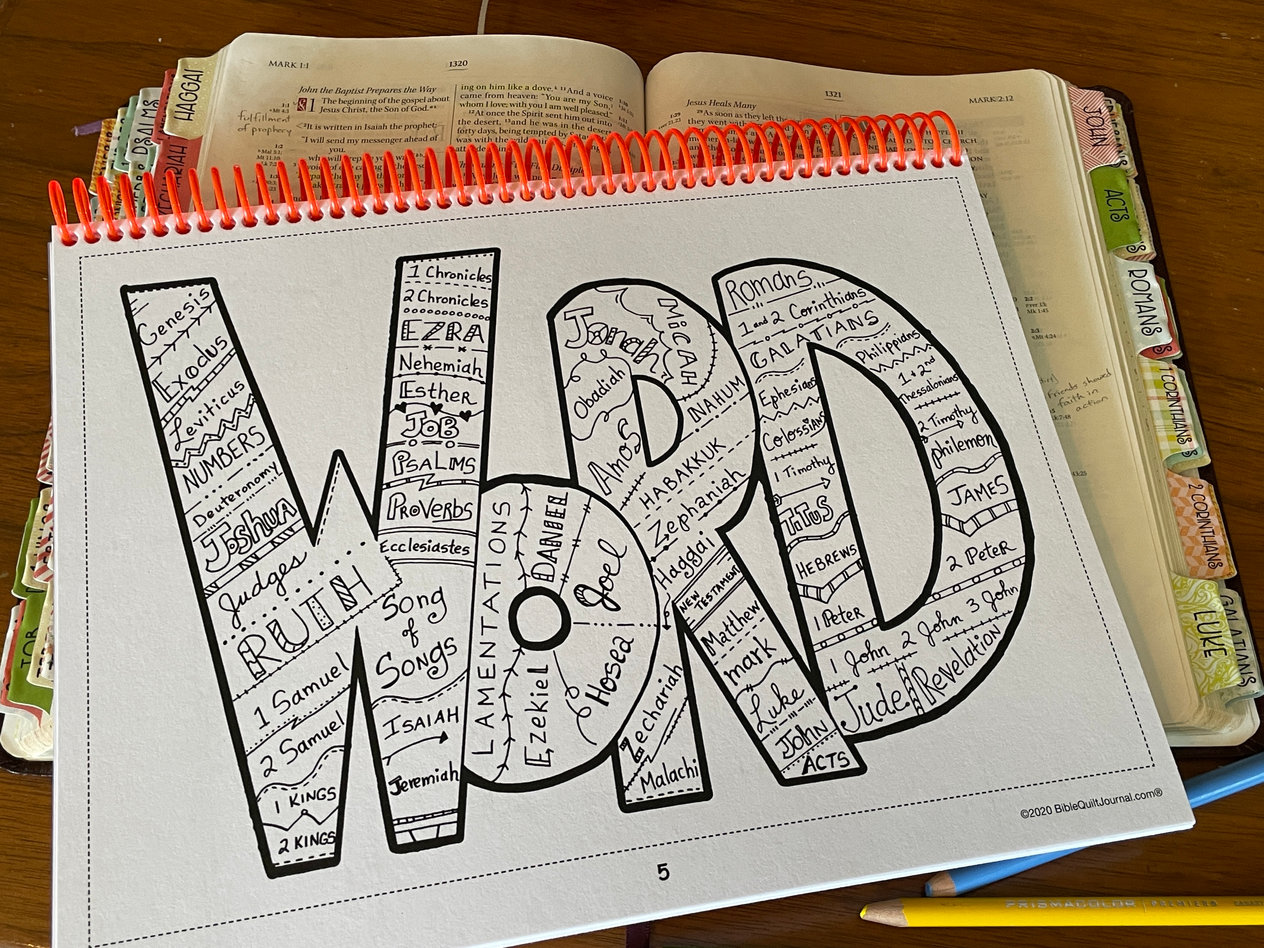 MARK 1:1
1320
John the Baptist Prepares the Way
1 The beginning of the gospel about
Jesus Christ, the Son of God.
fulfillment
of prophecy
2It is written in Isaiah the prophet:
"I will send my messenger ahead of
you,
ing on him like a dove. 11And a voice
came from heaven: "You are my Son,
whom I love; with you I am well pleased."
12At once the Spirit sent him out into
the desert, 13and he was in the desert
forty days, being tempted by
was with the wild
1321
MARK 2:12
Jesus Heals Many
29As soon as they left the
they went with
friends showed
faith in
action
HAGGAI
PSALMS
JOB
JOHN
ACTS
ROMANS
1 CORINTHIANS
2 CORINTHIANS
GALATIANS
LUKE
Genesis
Exodus
Leviticus
NUMBERS
Deuteronomy
JOSHUA
Judges
RUTH
1 Samuel
2 Samuel
1 KINGS
2 KINGS
1 Chronicles
2 Chronicles
EZRA
Nehemiah
Esther
JOB
PSALMS
PROVERBS
Ecclesiastes
Song
of
SONGS
ISAIAH
Jeremiah
LAMENTATIONS
Ezekiel
DANIEL
Hosea
Joel
Amos
Obadiah
Jonah
MICAH
NAHUM
HABAKKUK
Zephaniah
Haggai
Zechariah
Malachi
NEW
TESTAMENT
Matthew
mark
Luke
JOHN
ACTS
Romans
1 and 2 Corinthians
GALATIANS
Ephesians
Philippians
Colossians
1 + 2nd
Thessalonians
1 Timothy
2 Timothy
TITUS
philemon
HEBREWS
JAMES
1 Peter
2 Peter
1 John 2 John 3 John
Jude
Revelation
©2020 BibleQuiltJournal.com®
5
PRISMACOLOR PREMIER